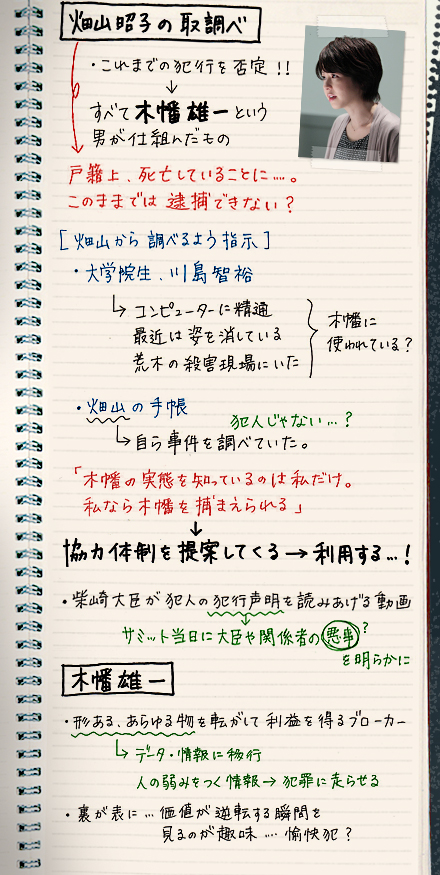 畑山昭子の取調べ
・これまでの犯行を否定!!
↓
すべて木幡雄一という
男が仕組んだもの
戸籍上、死亡していることに……。
このままでは逮捕できない？
[畑山から調べるよう指示]
・大学院生、川島智裕
→コンピューターに精通
最近は姿を消している
荒木の殺害現場にいた
木幡に
使われている？
・畑山の手帳
犯人じゃない…？
→自ら事件を調べていた。
「木幡の実態を知っているのは私だけ。
私なら木幡を捕まえられる」
↓
協力体制を提案してくる→利用する…!
・柴崎大臣が犯人の犯行声明を読みあげる動画
↓
サミット当日に大臣や関係者の悪事？
を明らかに
木幡雄一
・形ある、あらゆる物を転がして利益を得るブローカー
→データ・情報に移行
人の弱みをつく情報→犯罪に走らせる
・裏が表に…価値が逆転する瞬間を
見るのが趣味…. 愉快犯？